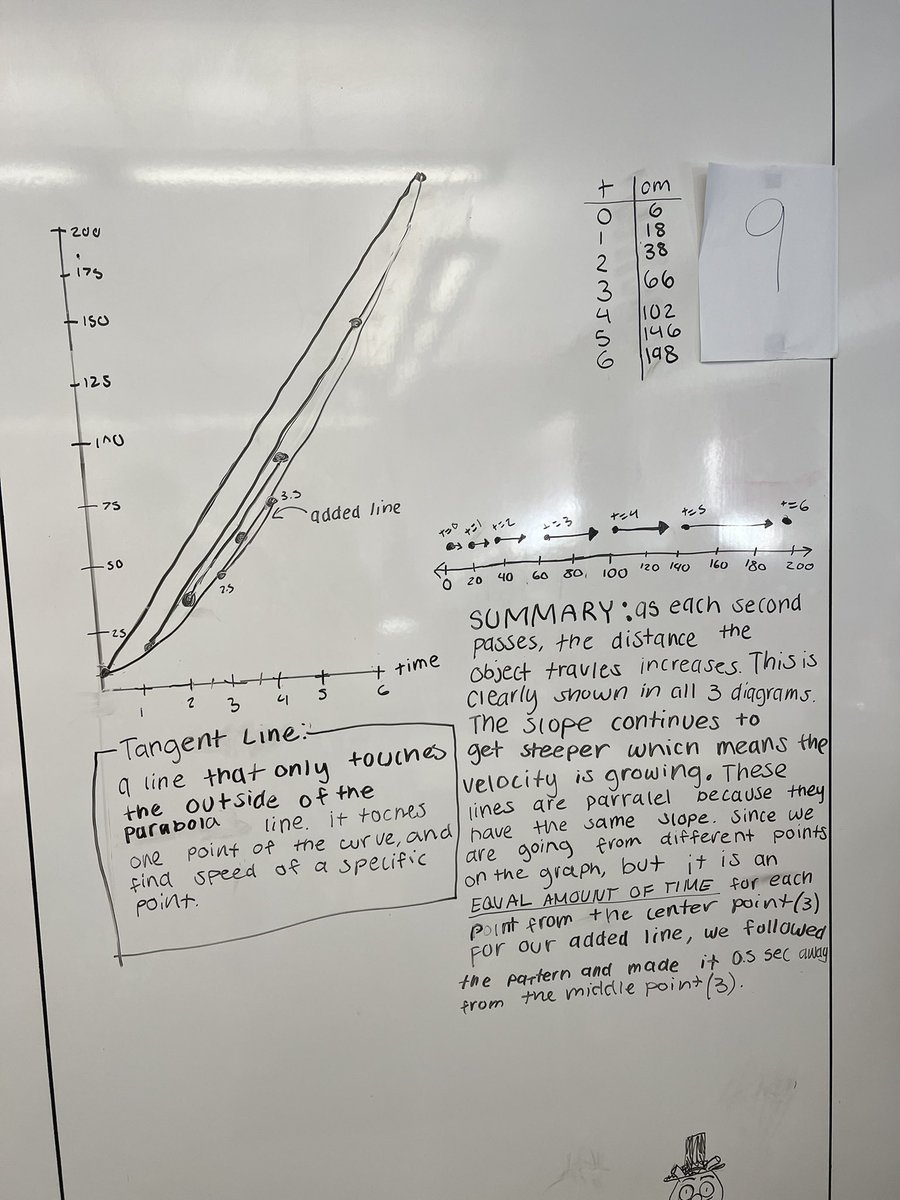 200
175
150
125
100
75
50
25
3.5
added line
2.5
1 2 3 4 5 6
time
t cm
0 6
1 18
2 38
3 66
4 102
5 146
6 198
9
t=0 t=1 t=2 t=3 t=4 t=5 t=6
0 20 40 60 80 100 120 140 160 180 200
Tangent Line:
a line that only touches
the outside of the
parabola line. it toches
one point of the curve, and
find speed of a specific
point.
SUMMARY: as each second
passes, the distance the
object travles increases. This is
clearly shown in all 3 diagrams.
The slope continues to
get steeper which means the
velocity is growing. These
lines are parralel because they
have the same slope. Since we
are going from different points
on the graph, but it is an
EQUAL AMOUNT OF TIME for each
point from the center point (3)
For our added line, we followed
the pattern and made it 0.5 sec away
from the middle point (3).